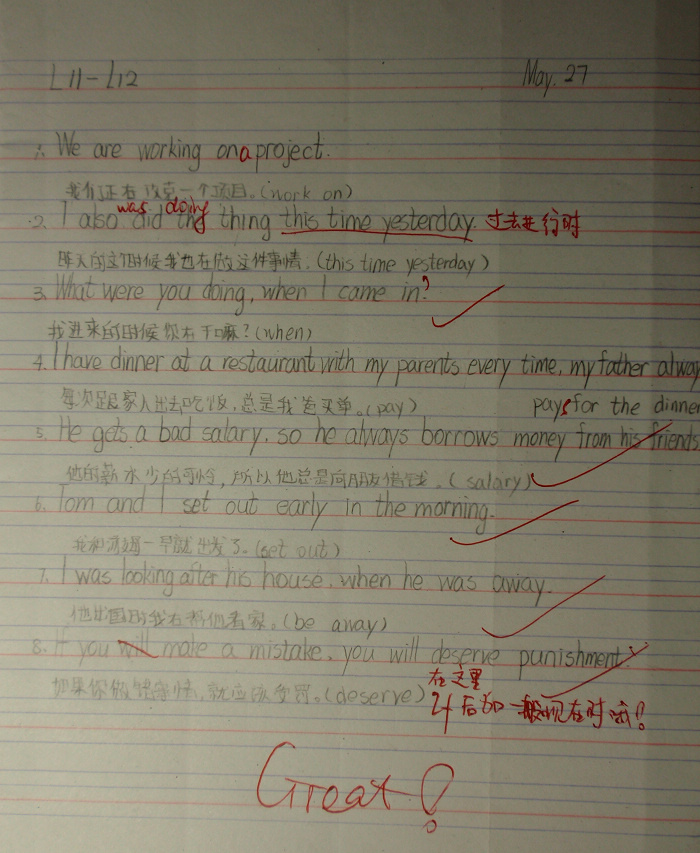 L11-L12 May. 27
1. We are working on a project.
我们正在攻克一个项目。(work on)
was doing
2. I also did the thing this time yesterday. 过去进行时
昨天的这个时候我也在做这件事情。(this time yesterday)
3. What were you doing, when I came in?
我进来的时候你在干嘛?(when)
4. I have dinner at a restaurant with my parents every time, my father alway
每次跟家人出去吃饭,总是我爸买单。(pay) pays for the dinner
5. He gets a bad salary. so he always borrows money from his friends.
他的薪水少的可怜,所以他总是向朋友借钱。(salary)
6. Tom and I set out early in the morning.
我和汤姆一早就出发了。(set out)
7. I was looking after his house. when he was away.
他出国时我在帮他看家。(be away)
8. If you will make a mistake. you will deserve punishment.
在这里
如果你做错事情,就应该受罚。(deserve) if后加一般现在时哦!
Great!